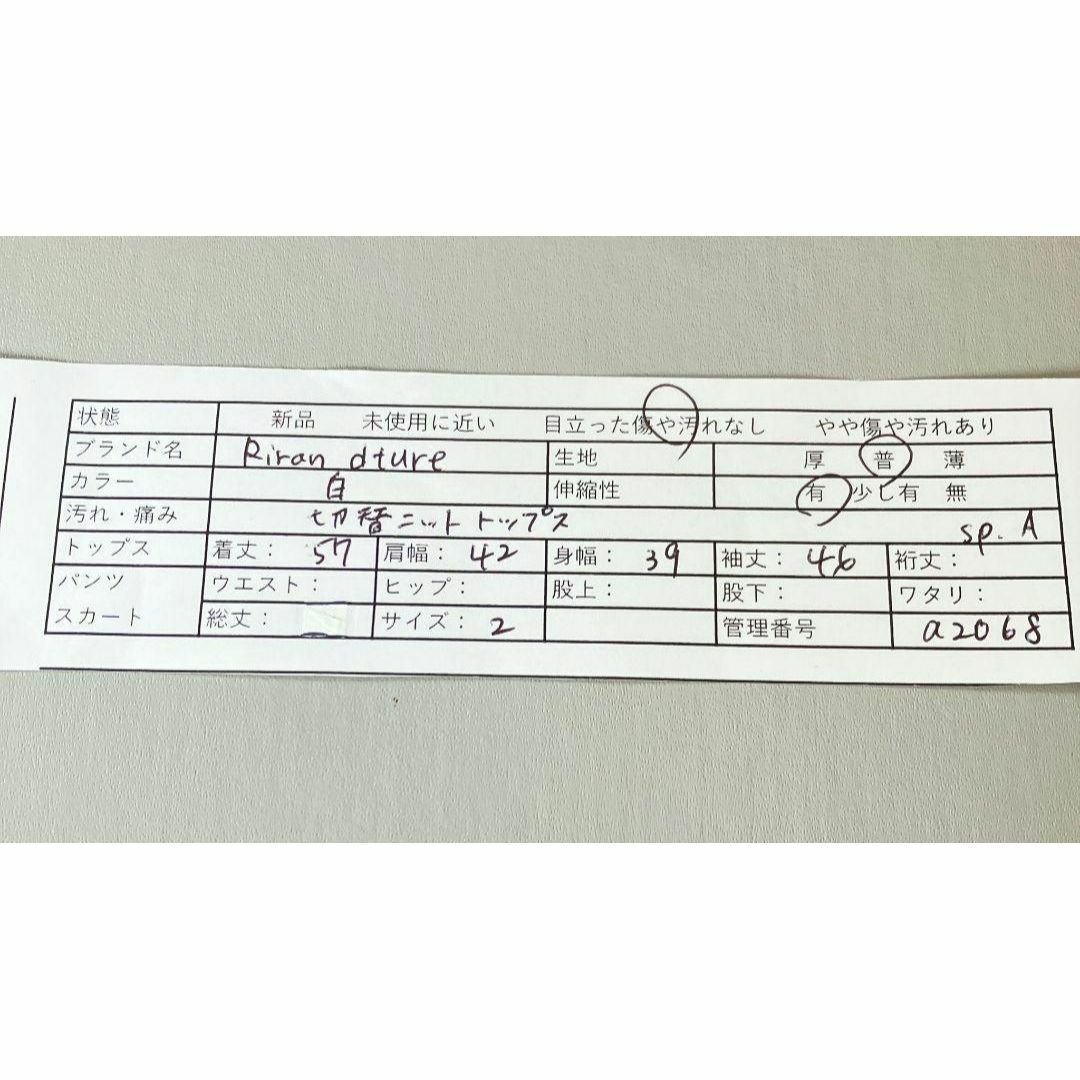 状態 新品 未使用に近い 目立った傷や汚れなし やや傷や汚れあり
ブランド名 Riran dture 生地 厚 普 薄
カラー 白 伸縮性 有 少し有 無
汚れ・痛み 切替ニットトップス sp. A
トップス 着丈： 57 肩幅： 42 身幅： 39 袖丈： 46 裄丈：
パンツ ウエスト： ヒップ： 股上： 股下： ワタリ：
スカート 総丈： サイズ： 2 管理番号 a2068